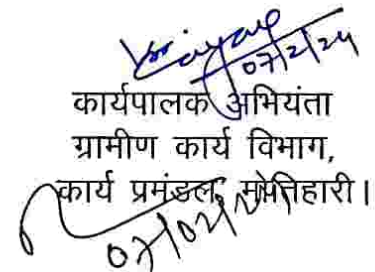 07/2/24
कार्यपालक अभियंता
ग्रामीण कार्य विभाग,
कार्य प्रमंडल, मोतिहारी।